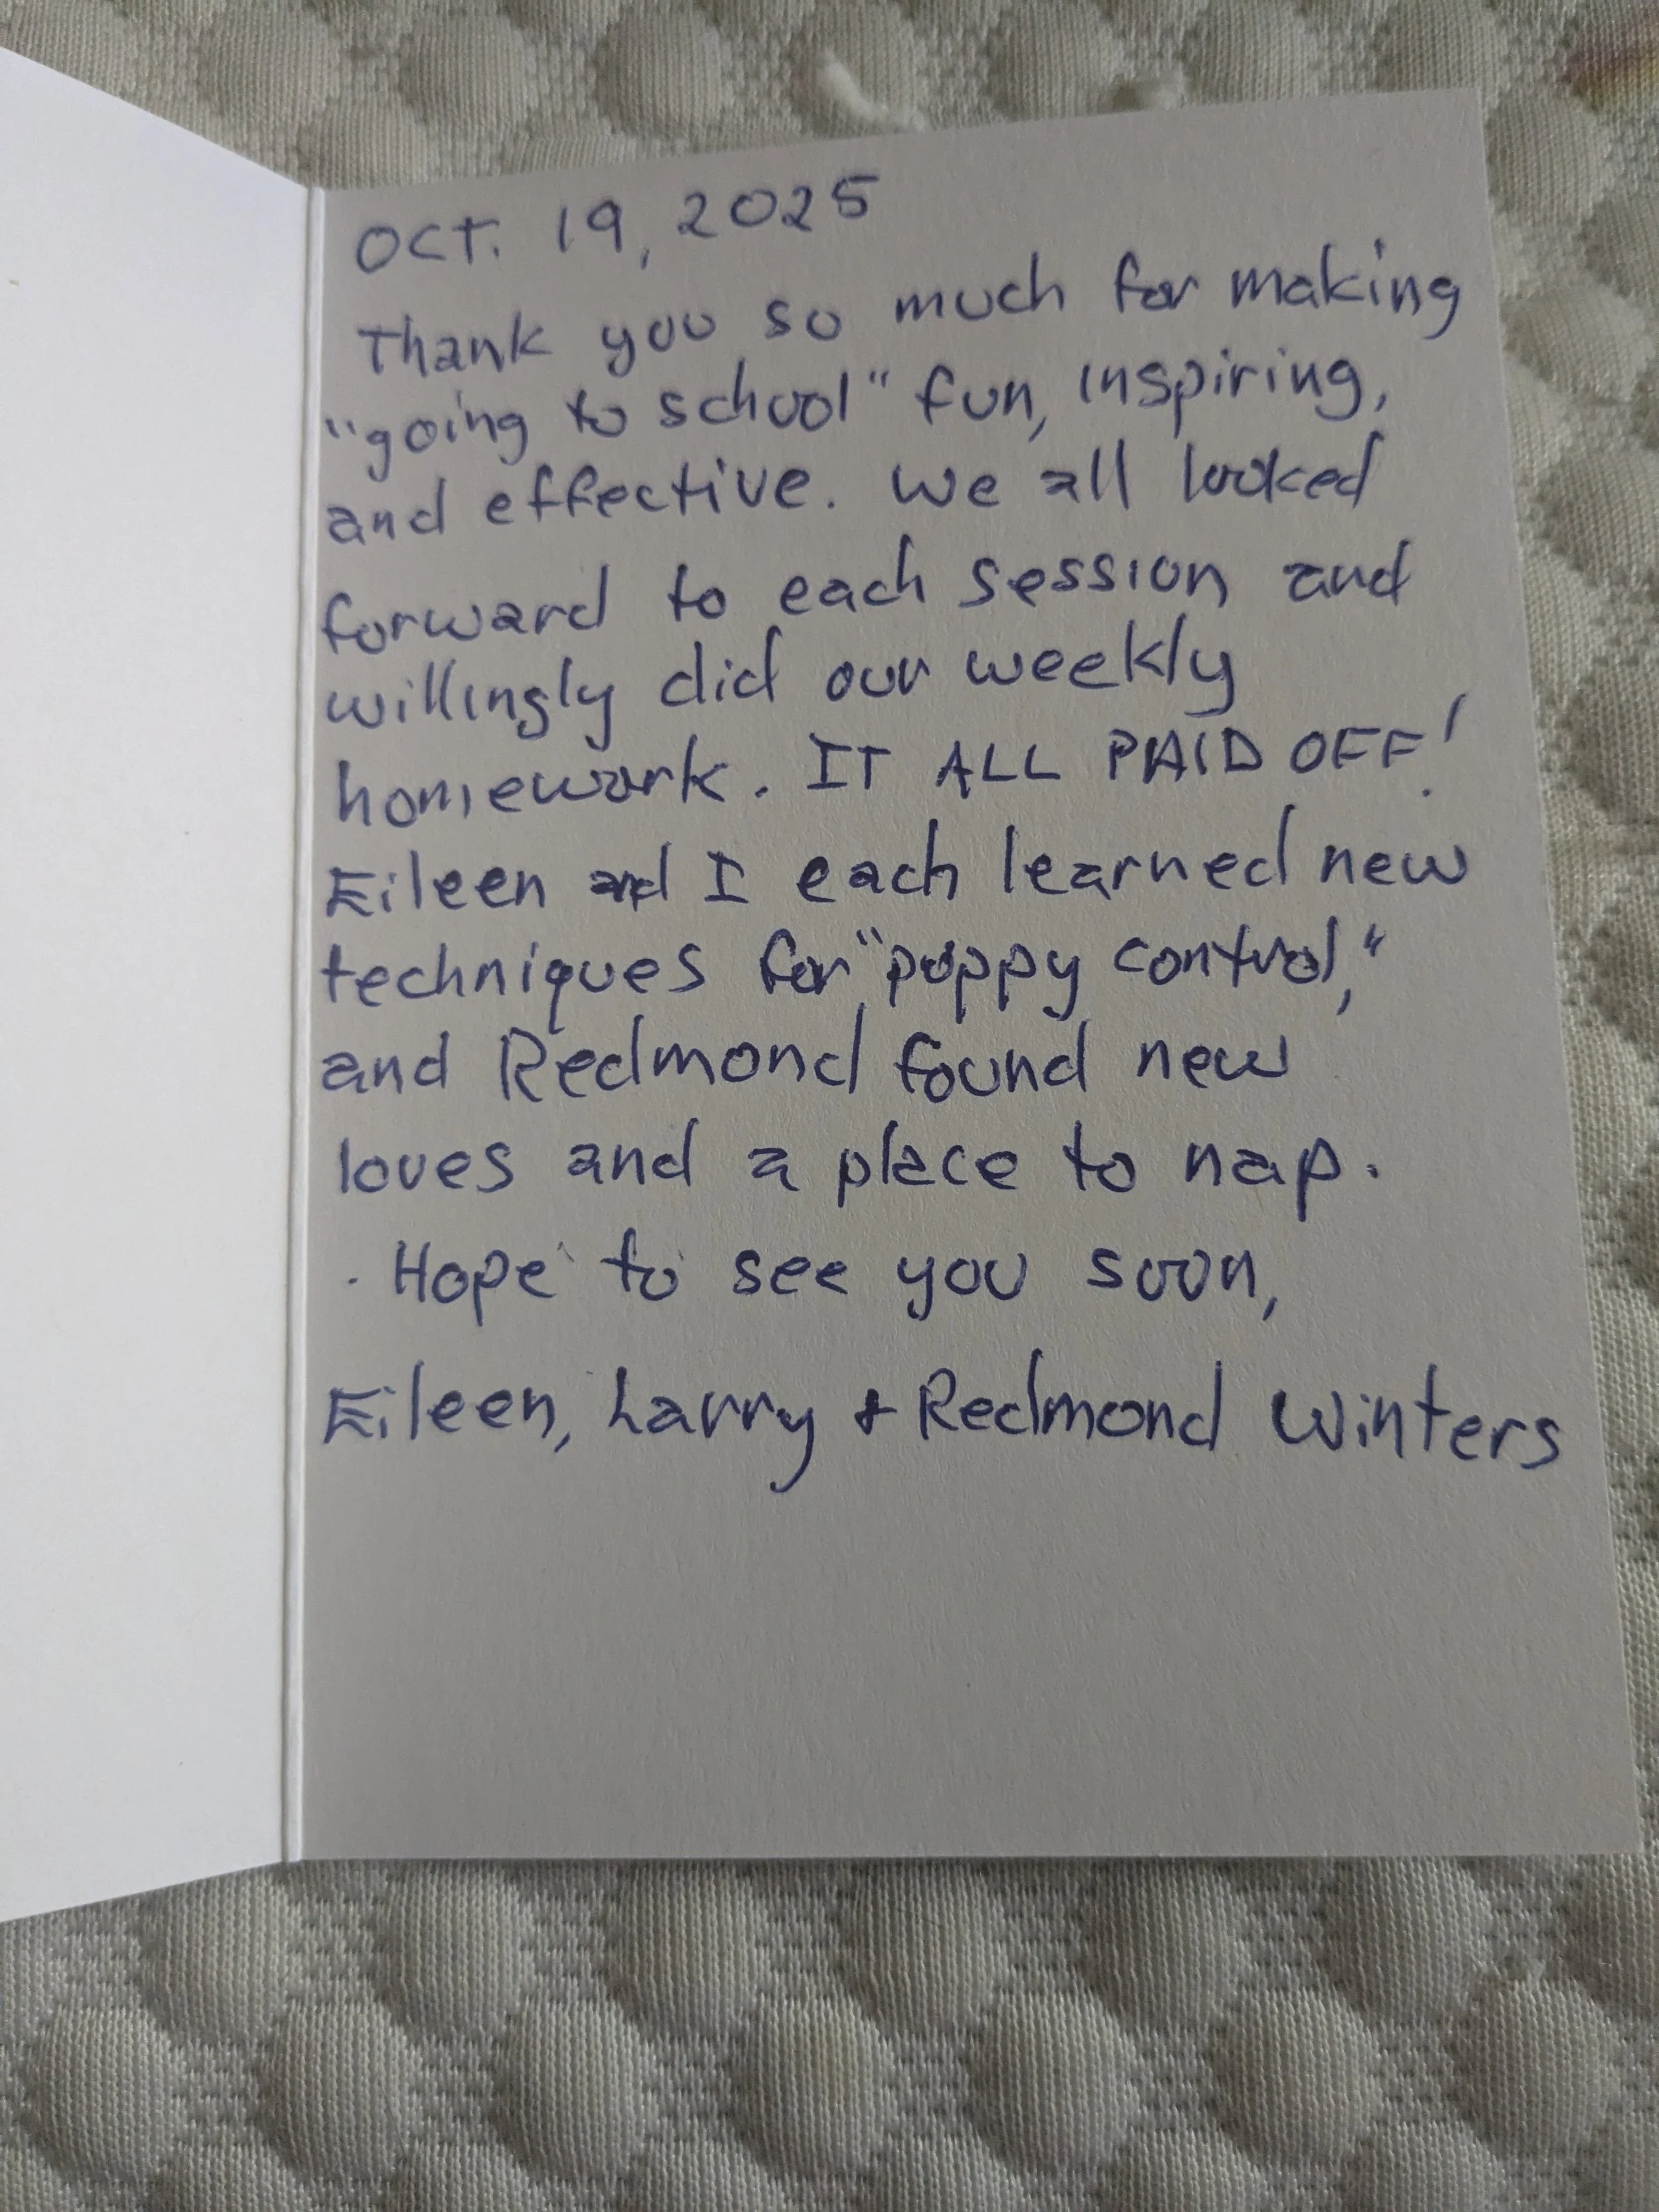 OCT. 19, 2025
Thank you so much for making
"going to school" fun, inspiring,
and effective. We all looked
forward to each session and
willingly did our weekly
homework. IT ALL PAID OFF!
Eileen and I each learned new
techniques for "puppy control,"
and Redmond found new
loves and a place to nap.
Hope to see you soon,
Eileen, Larry + Redmond Winters